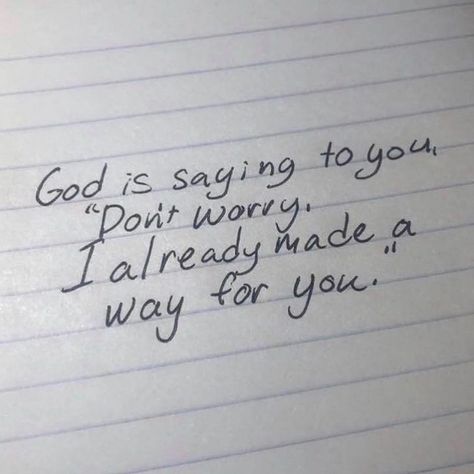 God is saying to you,
"Don't worry.
I already made a
way for you."